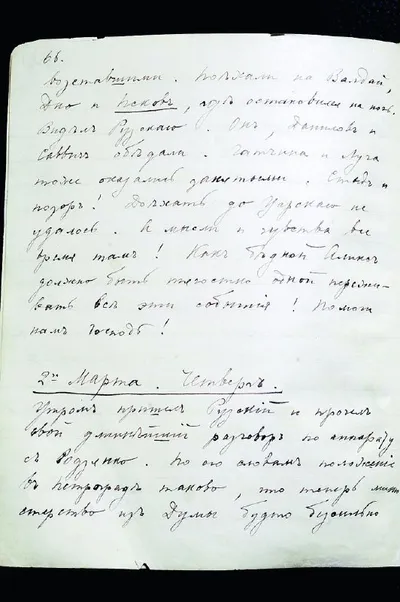 66.
возставшими. Поѣхали на Валдай,
Дно и Псковъ, гдѣ остановился на ночь.
Видѣлъ Рузскаго. Онъ, Даниловъ и
Саввичъ обѣдали. Гатчина и Луга
тоже оказались занятыми. Стыдъ и
позоръ! Доѣхать до Царскаго не
удалось. А мысли и чувства все
время тамъ! Какъ бѣдной Аликсъ
должно быть тягостно одной пережи-
вать всѣ эти событія! Помоги
намъ Господь!
2го Марта. Четвергъ.
Утромъ пришелъ Рузскій и прочелъ
свой длиннѣйшій разговоръ по аппарату
съ Родзянко. По его словамъ положеніе
въ Петроградѣ таково, что теперь мини
стерство изъ Думы будто безсильно